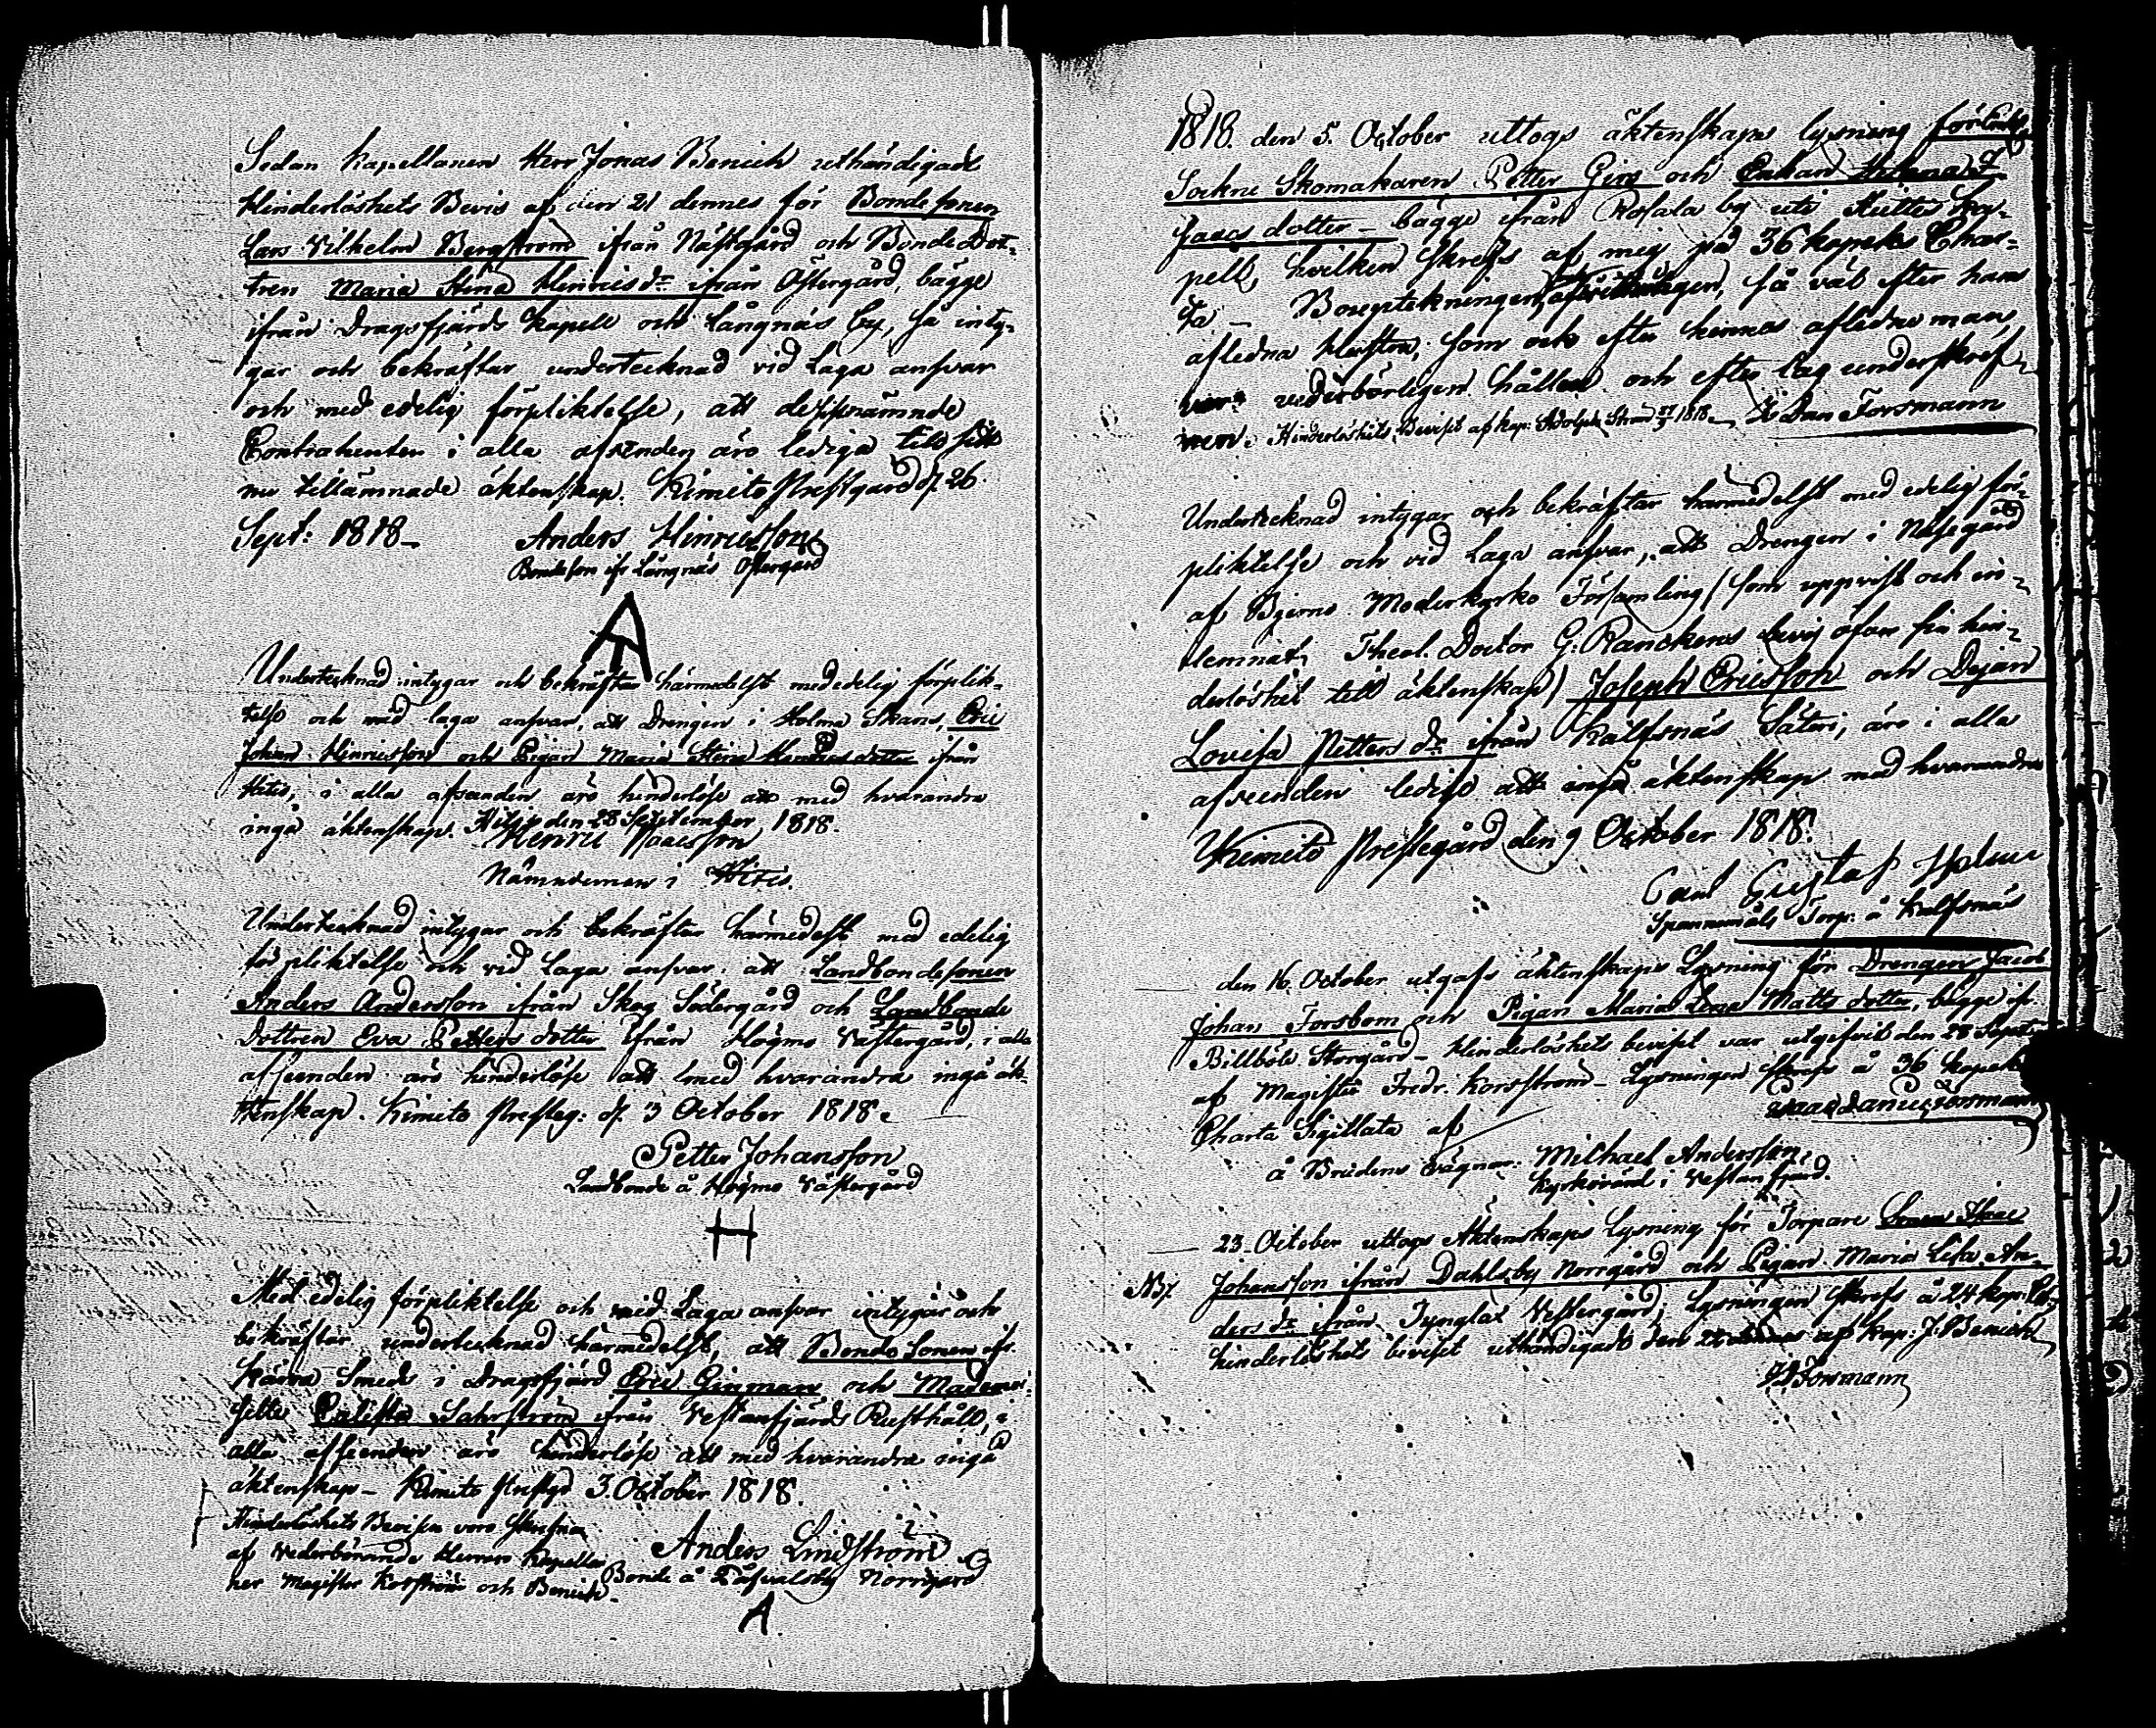 Sedan Kapellanen Herr Jonas Benich uthändigade
Hinderlöshets Bevis af den 21 dennes för Bonde sonen
Lars Vilhelm Bergström ifrån Nästgård och Bonde Dot-
tren Maria Stina Henricsdr ifrån Östergård, bägge
ifrån Dragsfjärds Kapell och Långnäs By, så inty-
gar och bekräftar undertecknad vid Laga ansvar
och med edelig förpliktelse, att dessnämnde
Contrahenter i alla afseenden äro lediga till sitt
nu tillämnade äktenskap. Kimito Prestgård d. 26.
Sept: 1818.
Anders Hinricsson
Bondeson ifr Långnäs Östergård
A
Undertecknad intygar och bekräftar härmedelst med edelig förplik-
telse och med laga ansvar, att Drengen i Holma Skans, Eric
Johan Hinricsson och Pigan Maria Stina Henricsdotter ifrån
Hitis, i alla afseenden äro hinderlöse att med hvarandra
ingå äktenskap. Hitis den 28 September 1818.
Henric Isacsson
Nämndeman i Hitis.
Undertecknad intygar och bekräftar härmedelst med edelig
förpliktelse och vid Laga ansvar att Landbondesonen
Anders Andersson ifrån Skog Södergård och Landbonde
Dottren Eva Petters dotter ifrån Högmo Västergård, i alla
afseenden äro hinderlöse att med hvarandra ingå äk-
tenskap. Kimito Presteg: d. 3 October 1818.
Petter Johansson
Landbonde å Högmo Västergård
H
Med edelig förpliktelse och vid Laga ansvar intygar och
bekräftar undertecknad härmedelst, att Bonde Sonen ifr.
Kärra Smeds i Dragsfjärd Eric Ginman och Mademoi-
selle Calista Sahrström ifrån Vestanfjärds Rusthåll, i
alla afseenden äro hinderlöse att med hvarandra ingå
äktenskap - Kimito Prestgd 3. October 1818.
Hinderlöshets Bevisen voro skrefna
af Vederbörande Herrar Kapella-
ner Magister Korsström och Benich.
Anders Lindström
Bonde å Norrgård
A.
1818. den 5. October uttogs äktenskaps lysning för
Sockne Skomakaren Petter Girs och Enkan Helena I
saacs dotter - bägge ifrån Rosala by uti Hitis Ka-
pell, hvilken skrefs af mig på 36 kopeks Char-
ta - Bouppteckningen, så väl efter hans
aflidna Hustru, som ock efter hennes aflidne man
var vederbörligen hållen och efter lag underskref-
ven. Hinderlöshets Beviset af Kap: Adolph Strand 1818. Is Dan Forsmann
Undertecknad intygar och bekräftar härmedelst med edelig för-
pliktelse och vid Laga ansvar, att Drengen i Näsegård
af Bjerno Moderkyrko Församling (som uppvist och in-
lemnat Theol. Doctor G: Ranckens bevis öfver sin hin-
derlöshet till äktenskap) Joseph Ericsson och Dejan
Lovisa Petters dr ifrån Kalfsnäs Säteri, äro i alla
afseenden ledige att ingå äktenskap med hvarandra
Kimito Prestegård den 9 October 1818.
Carl Gustaf
Spannemåls Torp: å Kalfsnäs
den 16. October utgafs äktenskaps Lysning för Drengen Jacob
Johan Forsbom och Pigan Maria Lena Matts dotter, bägge ifr.
Billböle Storgård - Hinderlöshets beviset var utgifvit den 28 Sept.
af Magister Fredr. Korsström - Lysningen skrefs å 36 kopek
Charta Sigillata af Isaac Daniel Forsmann
å Brudens vägnar: Michael Andersson
Kyrkovärd i Vestanfjärd.
23. October uttogs Äktenskaps Lysning för Torpare Sonen Isaac
NB. Johansson ifrån Dahlsby Norrgård och Pigan Maria Lisa An-
ders dr ifrån Tynglax Vestergård; Lysningen skrefs å 24 kop.
hinderlöshets beviset uthändigade den af Kap: J. Benich
I D Forsmann